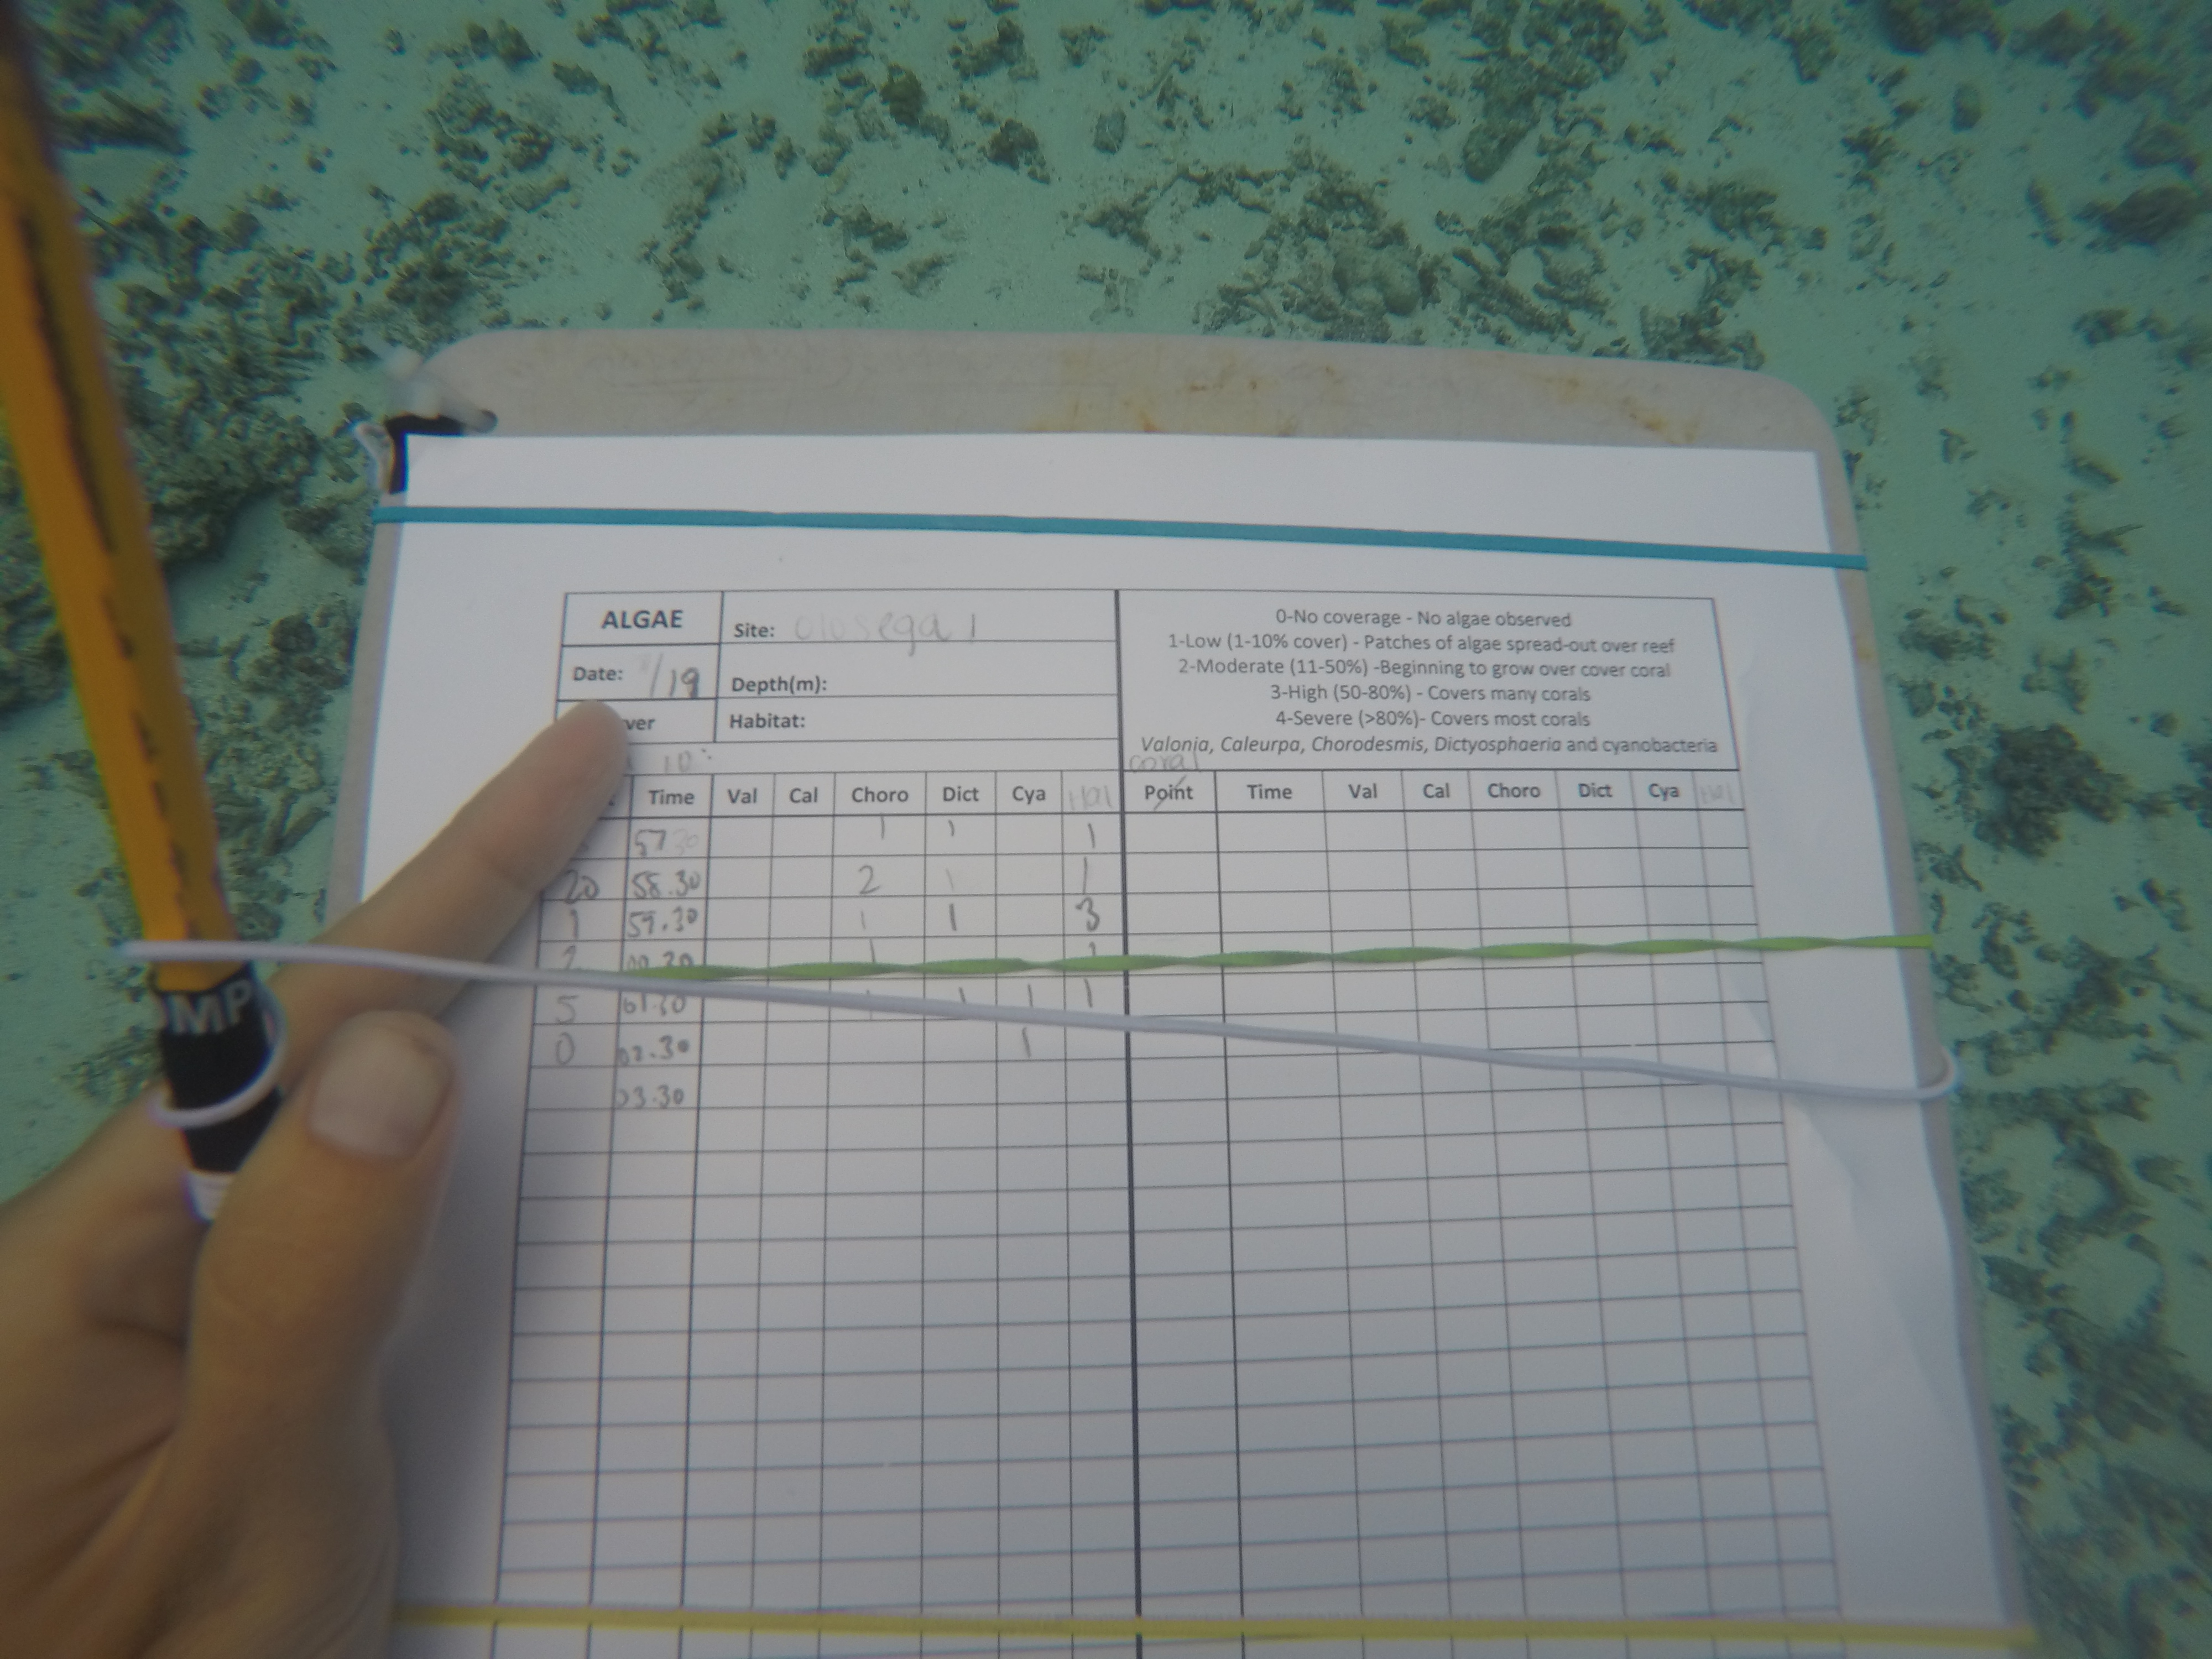 ALGAE Site: Olosega 1
Date: /19 Depth(m):
ver Habitat:
10:
0-No coverage - No algae observed
1-Low (1-10% cover) - Patches of algae spread-out over reef
2-Moderate (11-50%) -Beginning to grow over cover coral
3-High (50-80%) - Covers many corals
4-Severe (>80%)- Covers most corals
Valonia, Caleurpa, Chorodesmis, Dictyosphaeria and cyanobacteria
coral
Time Val Cal Choro Dict Cya Hal Point Time Val Cal Choro Dict Cya Hal
57 30 1 1 1
20 58.30 2 1 1
1 59.30 1 1 3
2 00.30 1
5 01.30 1 1 1 1
0 02.30 1
03.30
OMP